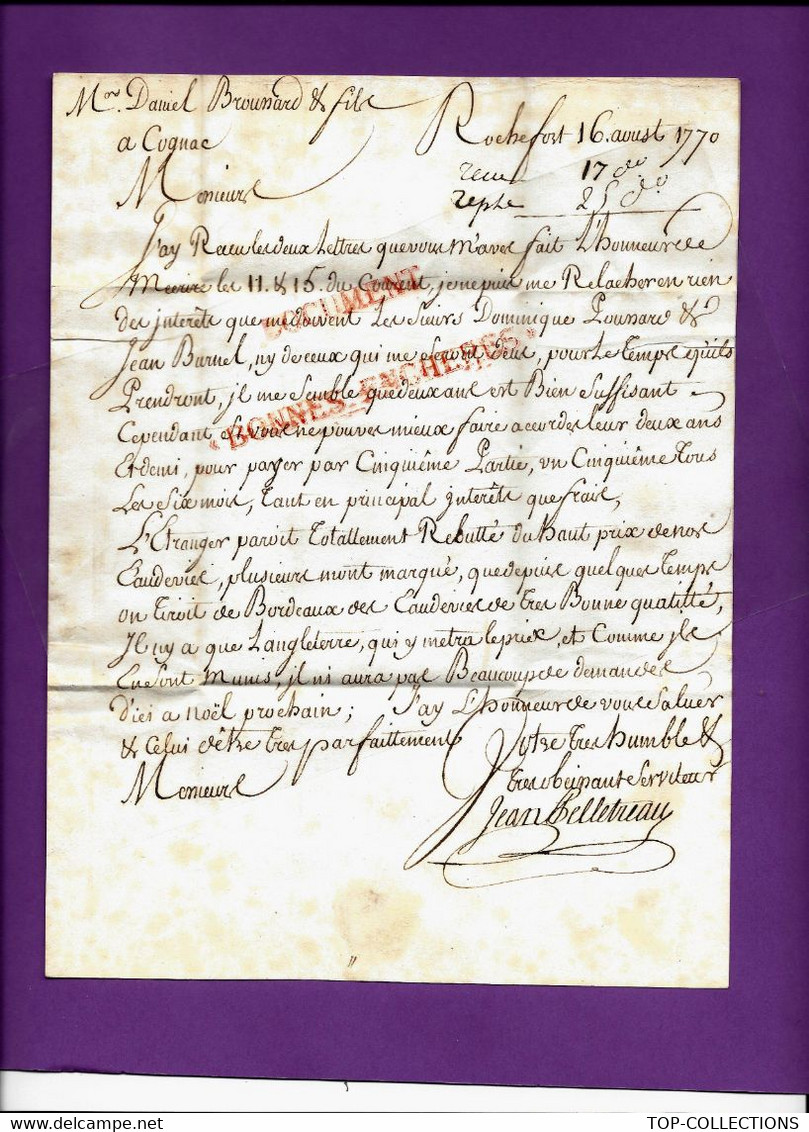 Mrs. Daniel Broussard & fils
a Cognac
Rochefort 16. aoust 1770
receu 17 do.
reple 25 do.
Messieurs
J'ay Receu les deux Lettres que vous m'aves fait L'honneur de
Mecrire les 11. & 15. du Courent, je ne puis me Relacher en rien
des interêts que me doivent Les Sieurs Dominique Poussard &
Jean Burnel, ny de ceux qui me seront deus, pour Le temps qu'ils
Prendront, il me semble que deux ans est Bien suffisant
Cependant si vous ne pouves mieux faire accordes leur deux ans
Et demi, pour payer par Cinquiéme Partie, un Cinquiéme tous
Les Six mois, tant en principal interêts que frais,
L'Etranger paroit totallement Rebutté du haut prix de nos
Eaudevies, plusieurs m'ont marqué, que depuis quelques temps
on tiroit de Bordeaux des Eaudevies de tres Bonne qualitté,
Il ny a que Langleterre, qui y metra le prix, et Comme ils
En sont Munis, il ni aura pas Beaucoup de demandes
D'ici a noël prochain; J'ay L'honneur de vous Saluer
& Celui d'être tres parfaittement
Messieurs
Votre tres humble &
tres obeissant Serviteur
Jean Pelletreau
DOCUMENT
" BONNES ENCHERES "
TOP-COLLECTIONS